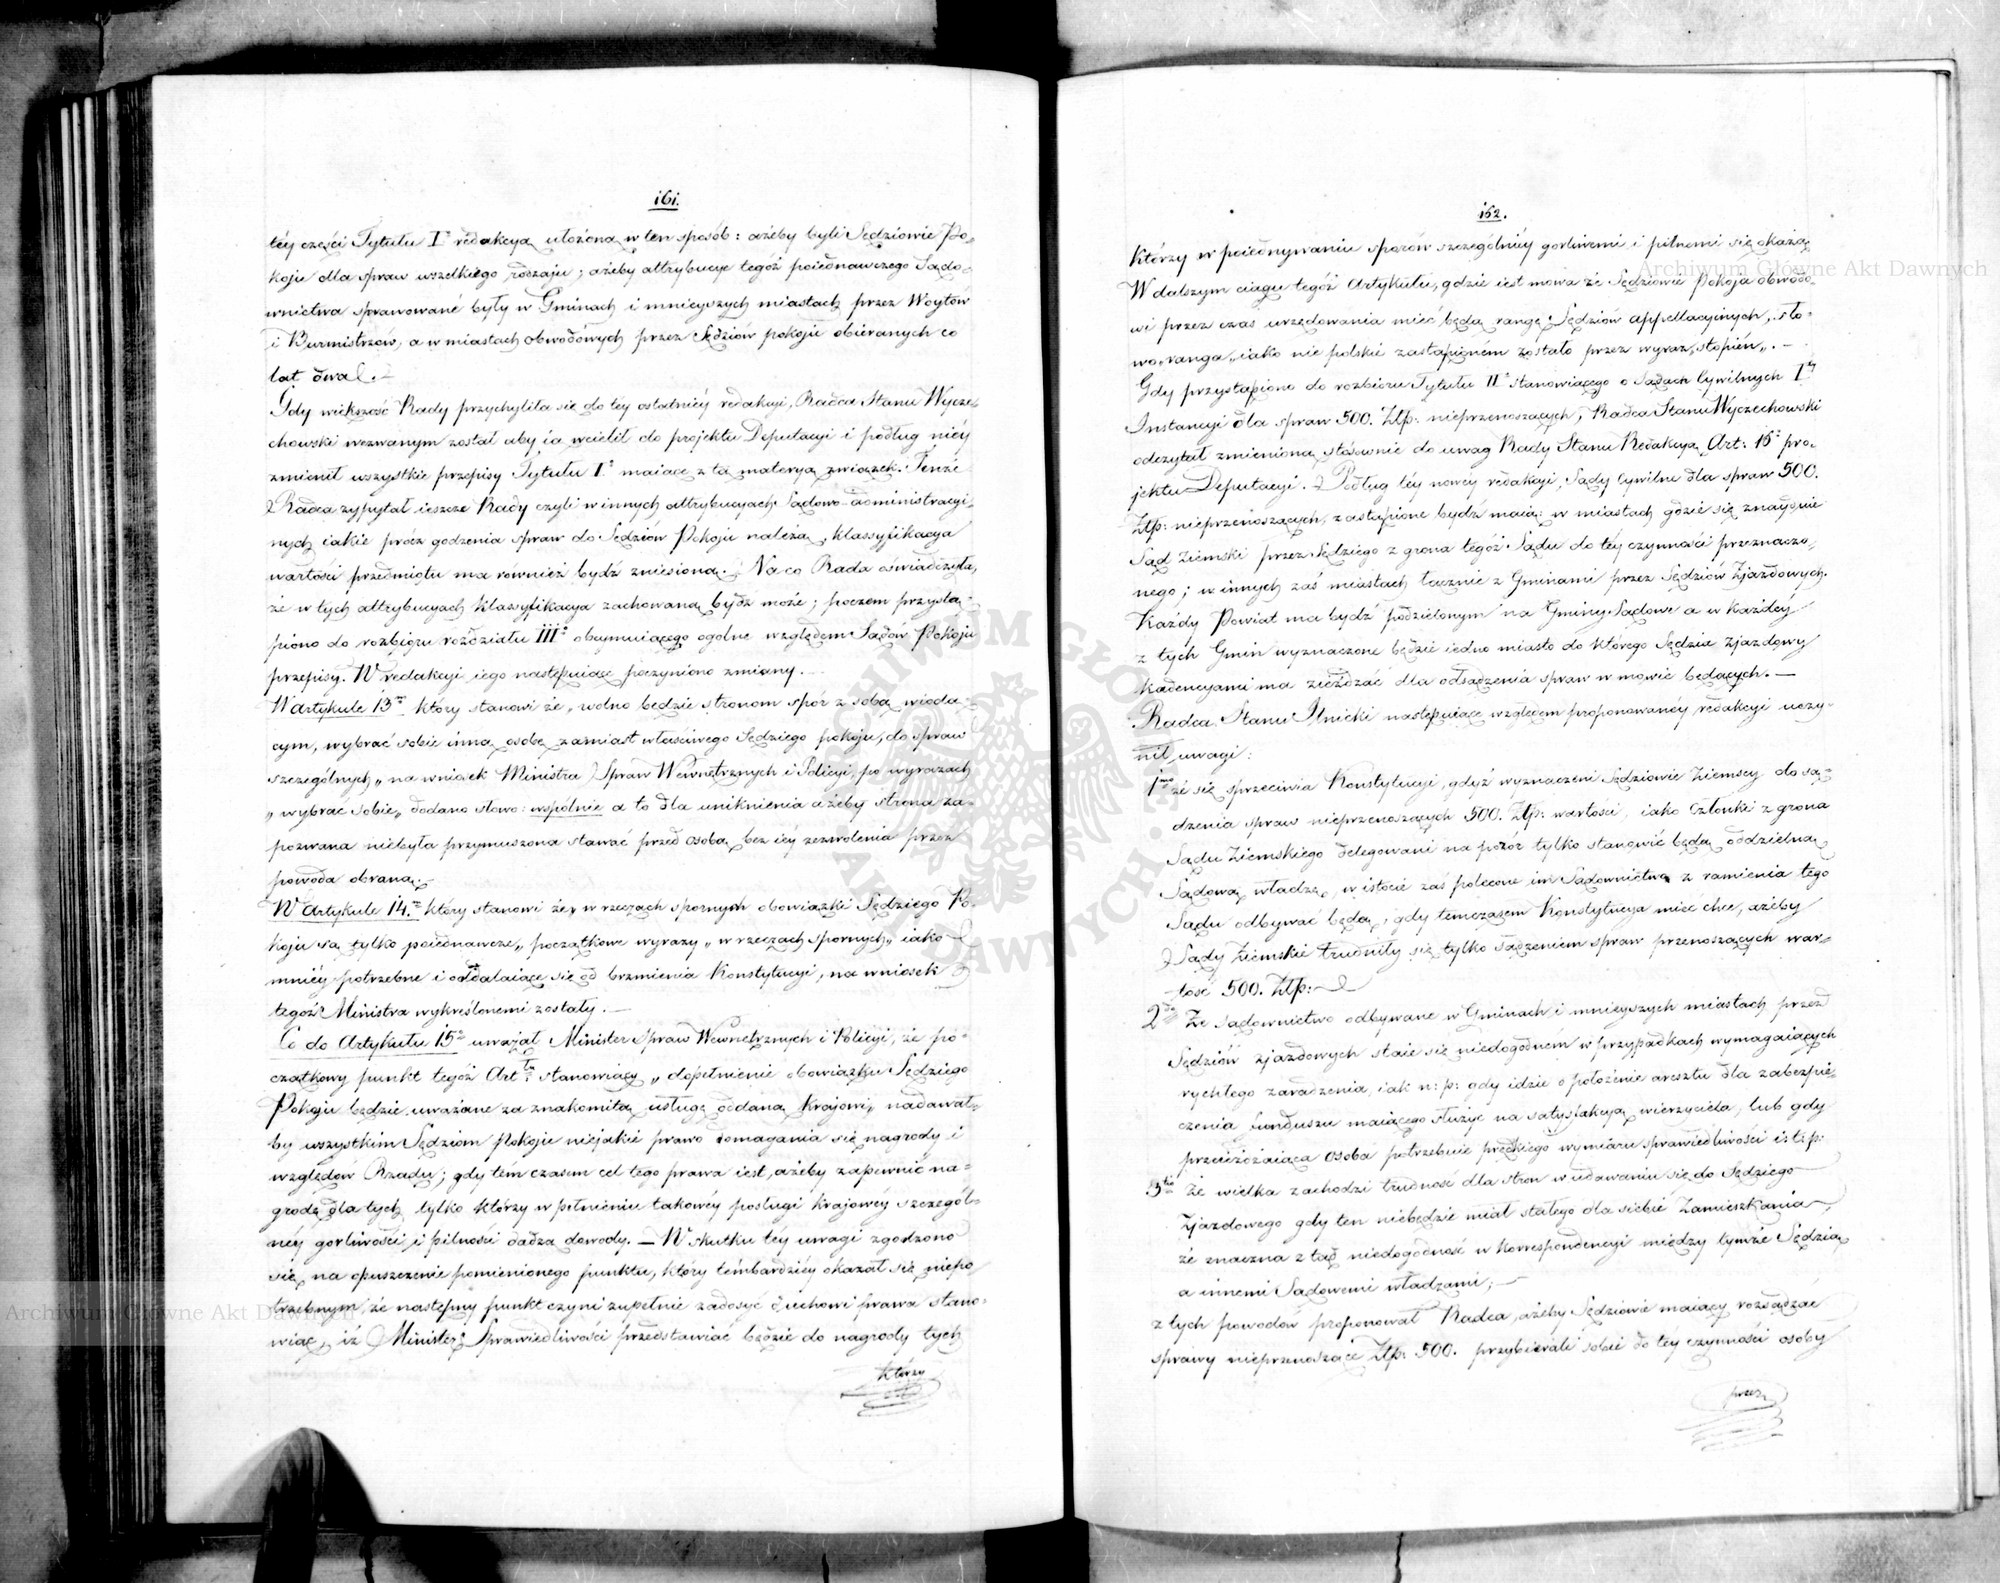 161.
téy części Tytułu I° redakcya ułożona w ten sposób: ażeby byli Sędziowie Po-
koju dla spraw wszelkiego rodzaju; ażeby attrybucye tegóż poiednawczego Sądo-
wnictwa sprawowane były w Gminach i mnieyszych miastach przez Woytów
i Burmistrzów, a w miastach obwodowych przez Sędziów pokoju obieranych co
lat dwa. —
Gdy większość Rady przychyliła się do téy ostatniéy redakcyi, Radca Stanu Wycze-
chowski wezwanym został aby ią wcielił do projektu Deputacyi i podług niéy
zmienił wszystkie przepisy Tytułu I° maiące z tą materyą związek. Tenże
Radca zypytał ieszcze Rady czyli w innych attrybucyach Sądowo-administracyi-
nych iakie prócz godzenia spraw do Sędziów Pokoju należą, klassyfikacya
wartości przedmiotu ma również bydź zniesioną. Na co Rada oświadczyła,
że w tych attrybucyach klassyfikacya zachowaną bydź może; poczem przystą-
piono do rozbioru rozdziału III° obeymuiącego ogólne względem Sądów Pokoju
przepisy. W redakcyi iego następuiące poczyniono zmiany. —
W artykule 13m który stanowi że „wolno będzie stronom spór z sobą wiodą-
cym, wybrać sobie inną osobę zamiast właściwego Sędziego pokoju, do spraw
szczególnych„ na wniosek Ministra Spraw Wewnętrznych i Policyi, po wyrazach
„wybrać sobie„ dodano słowo: wspólnie a to dla uniknienia ażeby strona za-
pozwana niebyła przymuszona stawać przed osobą, bez iéy zezwolenia przez
powoda obraną. —
W artykule 14m który stanowi że „w rzeczach spornych obowiązki Sędziego Po-
koju są tylko poiednawcze„ początkowe wyrazy „w rzeczach spornych„ iako
mniéy potrzebne i oddalaiące się od brzmienia Konstytucyi, na wniosek
tegóż Ministra wykreślonemi zostały. —
Co do Artykułu 15° uważał Minister Spraw Wewnętrznych i Policyi, że po-
czątkowy punkt tegóż Artłu stanowiący „dopełnienie obowiązku Sędziego
Pokoju będzie uważane za znakomitą usługę oddaną Krajowi„ nadawał-
by wszystkim Sędziom Pokoju niejakie prawo domagania się nagrody i
względów Rządu; gdy tem czasem cel tego prawa iest, ażeby zapewnić na-
grodę dla tych tylko którzy w pełnieniu takowéy posługi Krajowéy szczegól-
néy gorliwości i pilności dadzą dowody. — W skutku téy uwagi zgodzono
się na opuszczenie pomienionego punktu, który tembardziéy okazał się niepo-
trzebnym, że następny punkt czyni zupełnie zadosyć duchowi prawa stano-
wiąc, iż Minister Sprawiedliwości przedstawiać będzie do nagrody tych
którzy
162.
którzy w poiednywaniu sporów szczególniéy gorliwemi i pilnemi się okażą.
W dalszym ciągu tegóż Artykułu, gdzie iest mowa że Sędziowie Pokoju obwodo-
wi przez czas urzędowania mieć będą rangę Sędziów appellacyjnych, sło-
wo „ranga„ iako nie polskie zastąpioném zostało przez wyraz „stopień„. —
Gdy przystąpiono do rozbioru Tytułu II° stanowiącego o Sądach Cywilnych Iéy
Instancyi dla spraw 500. Złp: nieprzenoszących, Radca Stanu Wyczechowski
odczytał zmienioną stósownie do uwag Rady Stanu Redakcyą Art: 16° pro-
jektu Deputacyi. Podług téy nowéy redakcyi, Sądy Cywilne dla spraw 500.
Złp: nieprzenoszących, zastąpione bydź maią: w miastach gdzie się znayduie
Sąd Ziemski przez Sędziego z grona tegóż Sądu do téy czynności przeznaczo-
nego; w innych zaś miastach łącznie z Gminami przez Sędziów Zjazdowych.
Każdy Powiat ma bydź podzielonym na Gminy Sądowe a w każdéy
z tych Gmin wyznaczone będzie iedno miasto do którego Sędzia zjazdowy
kadencyami ma zieżdżać dla odsądzenia spraw w mowie będących. —
Radca Stanu Ilnicki następuiące względem proponowanéy redakcyi uczy-
nił uwagi:
1mo że się sprzeciwia Konstytucyi, gdyż wyznaczeni Sędziowie Ziemscy do są-
dzenia spraw nieprzenoszących 500. Złp: wartości, iako Członki z grona
Sądu Ziemskiego delegowani na pozór tylko stanowić będą oddzielną
Sądową władzę, w istocie zaś polecone im Sądownictwo z ramienia tego
Sądu odbywać będą, gdy tymczasem Konstytucya mieć chce, ażeby
Sądy Ziemskie trudniły się tylko sądzeniem spraw przenoszących war-
tość 500. Złp: —
2do Że Sądownictwo odbywane w Gminach i mnieyszych miastach przez
Sędziów zjazdowych staie się niedogodném w przypadkach wymagaiących
rychłego zaradzenia, iak n: p: gdy idzie o położenie aresztu dla zabezpie-
czenia funduszu maiącego służyć na satysfakcyą wierzyciela, lub gdy
przeieżdżaiąca osoba potrzebuie prędkiego wymiaru sprawiedliwości i: t: p:
3tio że wielka zachodzi trudność dla stron w udawaniu się do Sędziego
Zjazdowego gdy ten niebędzie miał stałego dla siebie Zamieszkania,
że znaczna z tąd niedogodność w korrespondencyi między tymże Sędzią
a innemi Sądowemi władzami; —
z tych powodów proponował Radca, ażeby Sędziowie maiący rozsądzać
sprawy nieprzenoszące Złp: 500. przybierali sobie do téy czynności osoby
przez
Archiwum Główne Akt Dawnych
Archiwum Główne Akt Dawnych
ARCHIWUM GŁÓWNE AKT DAWNYCH